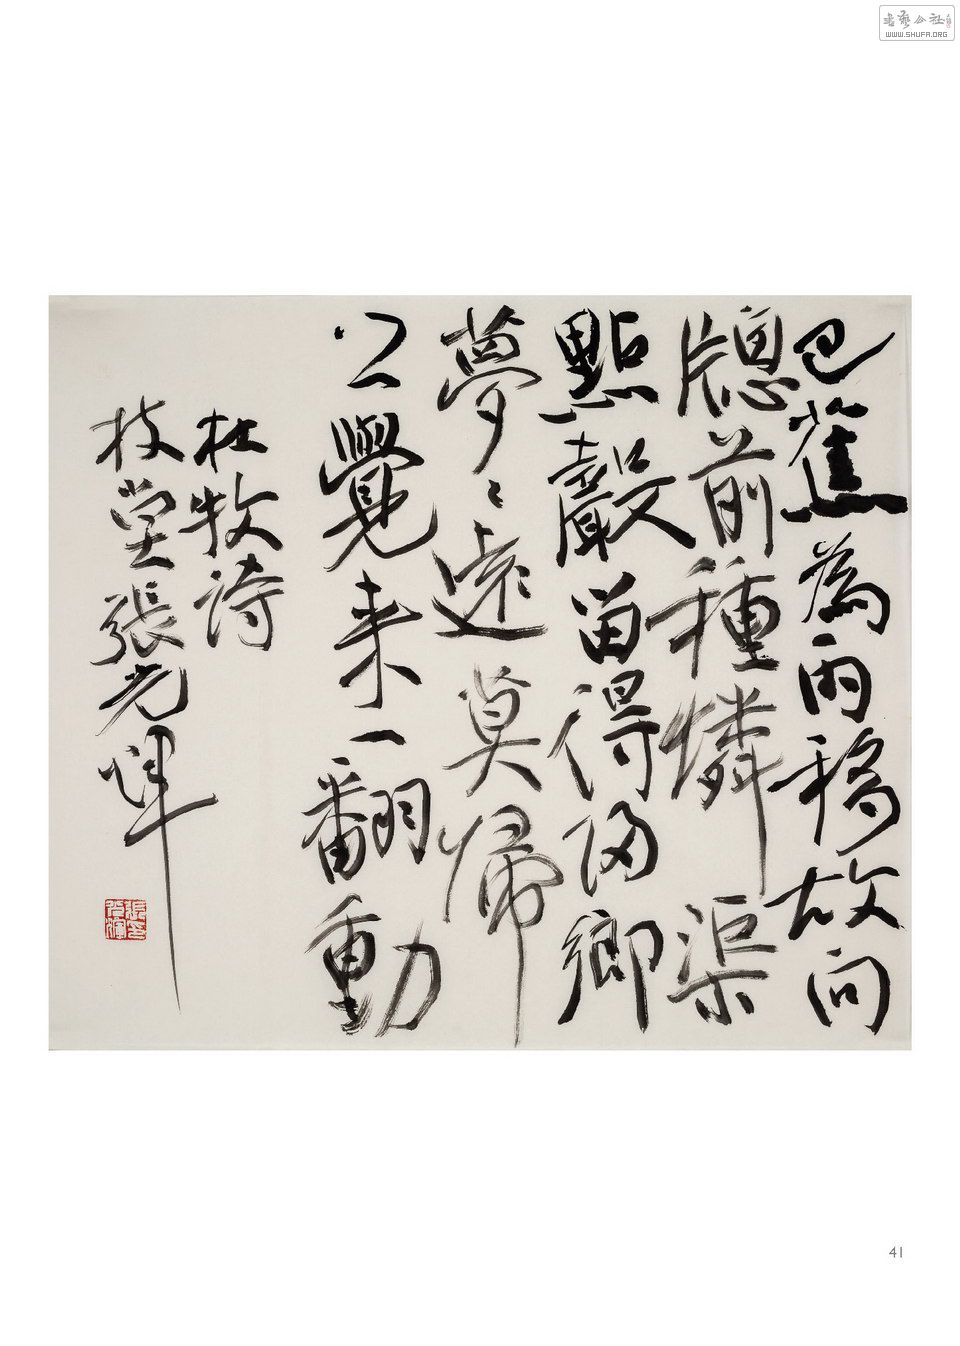 書藝公社
WWW.SHUFA.ORG
巴蕉為雨移故向
牕前種憐渠
點聲留得归鄉
夢〻遠莫歸
覺来一翻動
杜牧詩
枝堂張光煇
41